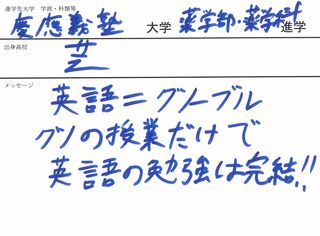 進学先大学 学部・科類等
慶應義塾 大学 薬学部・薬学科 進学
出身高校
芝
メッセージ
英語＝グノーブル
グノの授業だけで
英語の勉強は完結!!